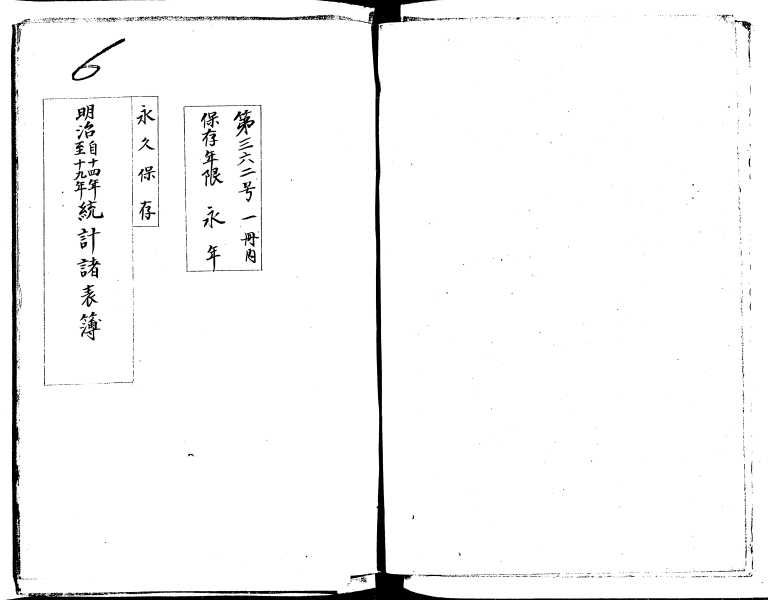 6
第三六二号 一冊内
保存年限 永年
永久保存
明治自十四年至十九年統計諸表簿